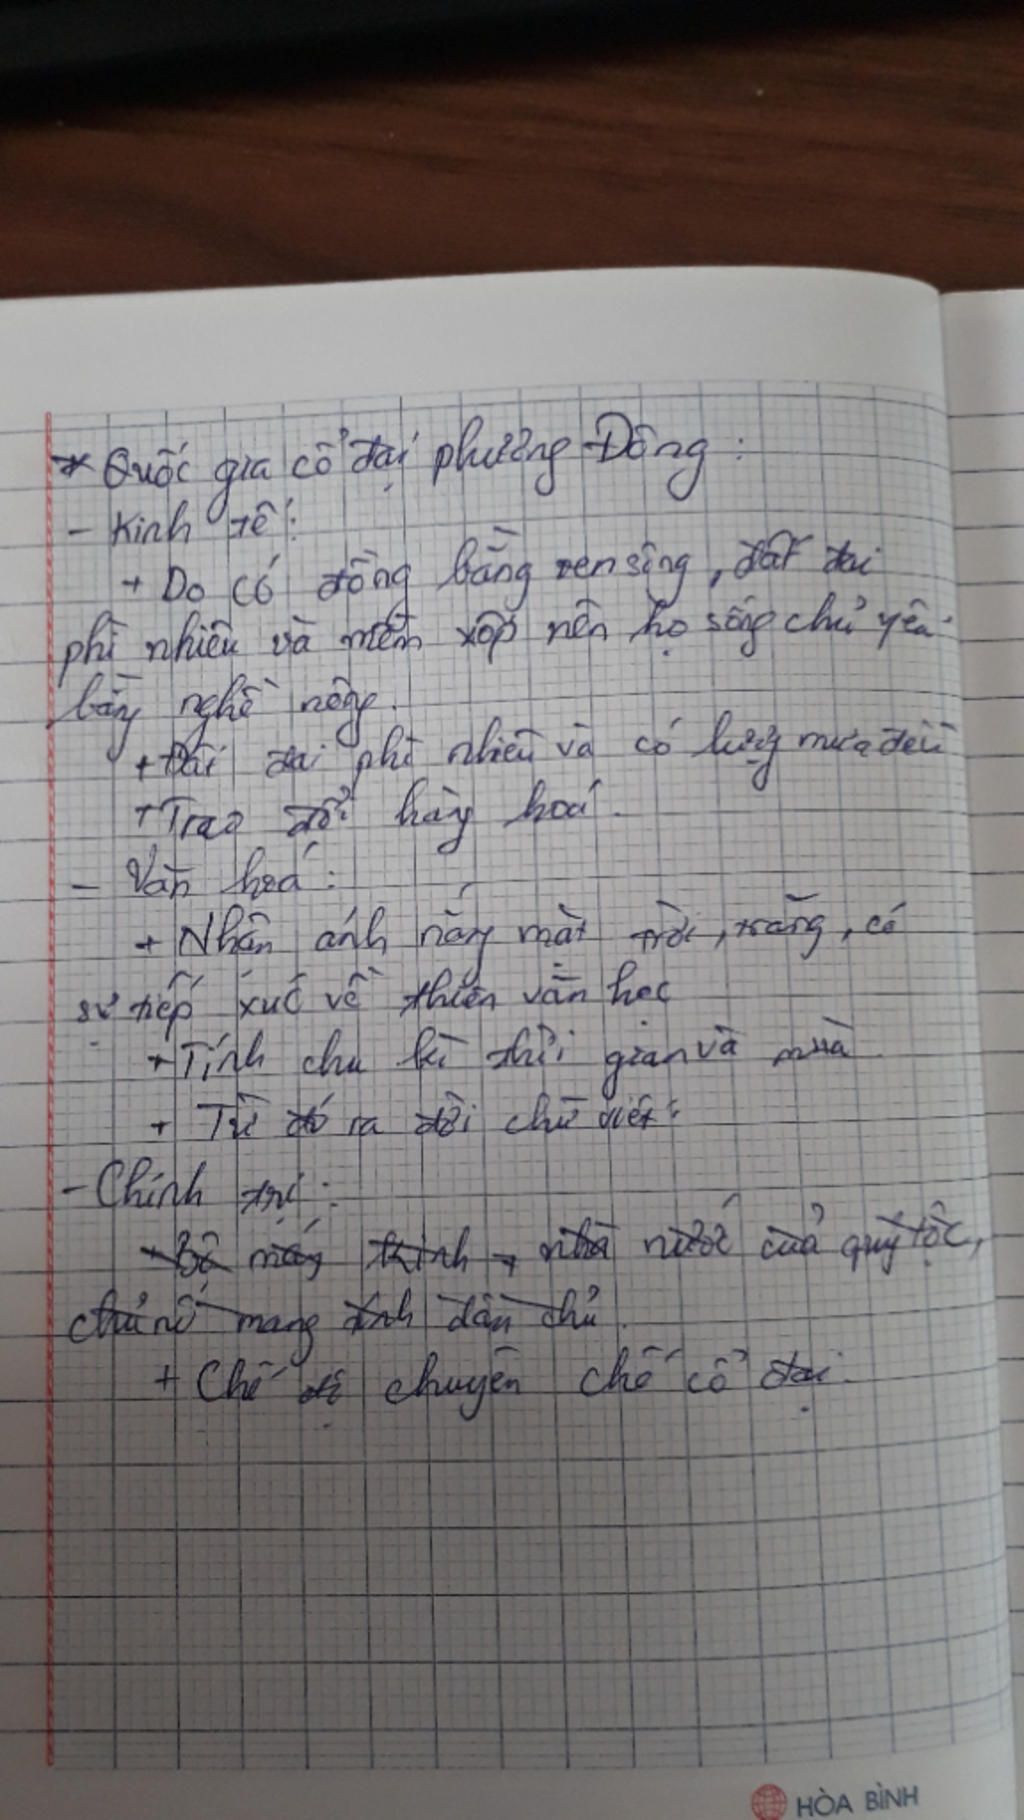 * Quốc gia cổ đại phương Đông:
- Kinh tế:
+ Do có đồng bằng ven sông, đất đai
phì nhiêu và mềm xốp nên họ sống chủ yếu
bằng nghề nông.
+ Đất đai phì nhiêu và có lượng mưa đều
+ Trao đổi hàng hoá.
- Văn hoá:
+ Nhận ánh nắng mặt trời, trăng, có
sự tiếp xúc về thiên văn học
+ Tính chu kì thời gian và mùa
+ Từ đó ra đời chữ viết.
- Chính trị:
+ Bộ máy hành, nhà nước của quý tộc,
chủ nô mang tính dân chủ.
+ Chế độ chuyên chế cổ đại.
HÒA BÌNH